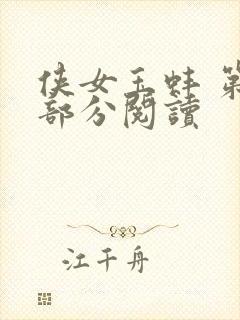 侠女玉蚌 第
部分閱讀
江千舟